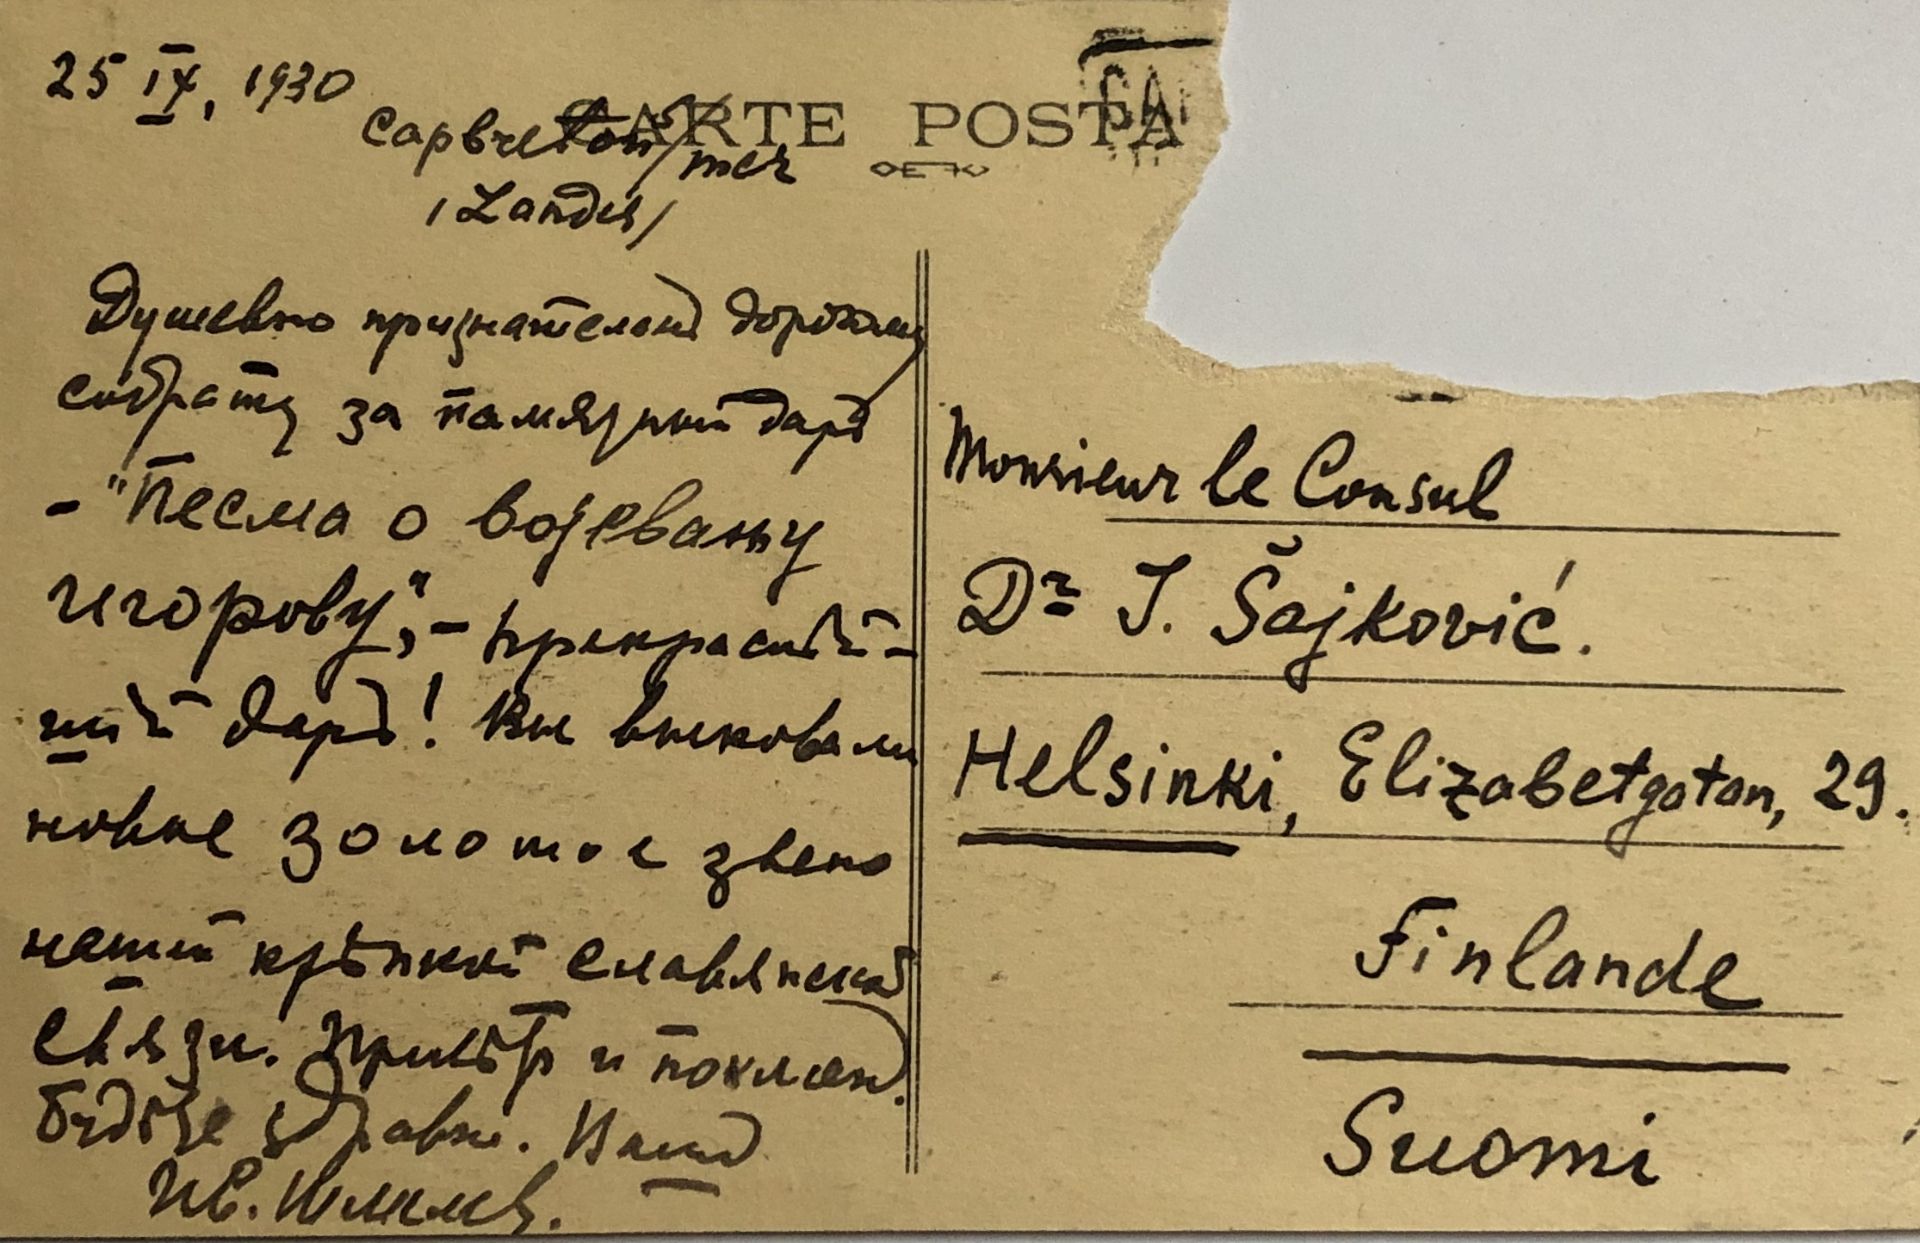 25 IX, 1930
CARTE POSTA
Capbreton s/mer
(Landes)
Душевно признателенъ дорогому
собрату за памятный даръ
- "Песма о војевању
Игорову", - прекраснѣй-
шій даръ! Вы выковали
новое золотое звено
нашей крѣпкой славянской
связи. Привѣтъ и поклонъ.
Будьте здравы. Вашъ
Ив. Шмелев.
Monsieur le Consul
Dr J. Šajković.
Helsinki, Elizabetgatan, 29.
Finlande
Suomi